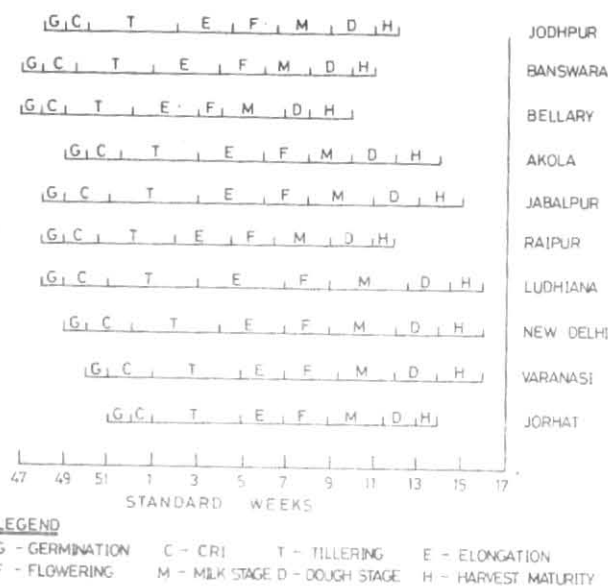 G C T E F M D H JODHPUR
G C T E F M D H BANSWARA
G C T E F M D H BELLARY
G C T E F M D H AKOLA
G C T E F M D H JABALPUR
G C T E F M D H RAIPUR
G C T E F M D H LUDHIANA
G C T E F M D H NEW DELHI
G C T E F M D H VARANASI
G C T E F M D H JORHAT
47 49 51 1 3 5 7 9 11 13 15 17
STANDARD WEEKS
LEGEND
G - GERMINATION C - CRI T - TILLERING E - ELONGATION
F - FLOWERING M - MILK STAGE D - DOUGH STAGE H - HARVEST MATURITY